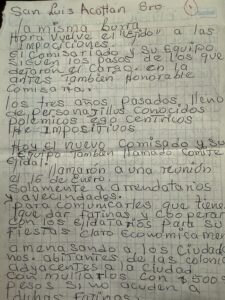 San Luis Acatlan Gro
la misma burra
Hora vuelve el ejido a las
Imposiciones.
El Comisariado y su equipo
siguen los pasos de los que
dejaron el cargo. en la
antes tambien Honorable
Comisaria.
los tres años, pasados, lleno
de personajillos conocidos
Polemicos es centricos
He Impositivos.
Hoy el nuevo Comisado y su
equipo tambien llamado comite
ejidal.
llamaron a una reunion
el 16 de Enero.
Solamente a arrendatarios
y avecindados.
Para comunicarles que tiene
que dar fatinas, y cooperar
con los ejidatarios para su
Fiestas claro economicamente
amenasando a los ciudada
nos. abitantes, de las colonia
adyacentes a la ciudad
con multarlos con $500
pesos si no acuden a
dichas fatinas.